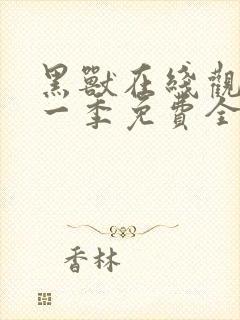 黑獸在綫觀
一季免費全
香林